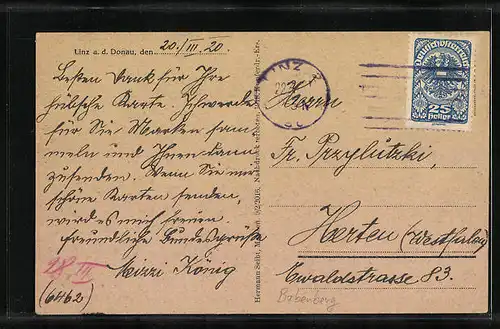 Linz a. d. Donau, den 20./III. 20.
Besten Dank für Ihre
hübsche Karte. Ich werde
für Sie Marken sam
meln und Ihnen dann
zusenden. Wenn Sie mir
schöne Karten senden,
wird es mich freuen.
Freundliche Bundesgrüße
Mizzi König
(6462)
28. III
Hermann Seibt, Meißen Nachdruck verboten
LINZ 2
Deutschösterreich
25
Heller
Herrn
Fr. Przylutzki,
Herten (Westfalen)
Ewaldstrasse 83.
Babenberg